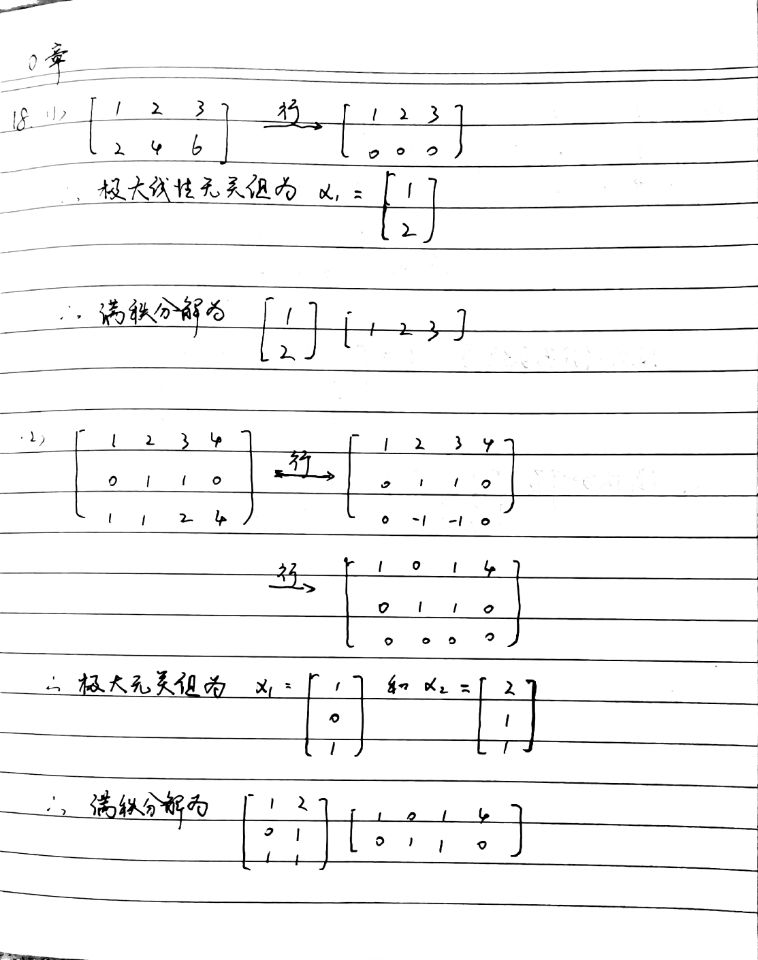 0章
18. (1) [1 2 3; 2 4 6] 行→ [1 2 3; 0 0 0]
∴ 极大线性无关组为 α₁ = [1; 2]
∴ 满秩分解为 [1; 2] [1 2 3]
(2) [1 2 3 4; 0 1 1 0; 1 1 2 4] 行→ [1 2 3 4; 0 1 1 0; 0 -1 -1 0]
行→ [1 0 1 4; 0 1 1 0; 0 0 0 0]
∴ 极大无关组为 α₁ = [1; 0; 1] 和 α₂ = [2; 1; 1]
∴ 满秩分解为 [1 2; 0 1; 1 1] [1 0 1 4; 0 1 1 0]